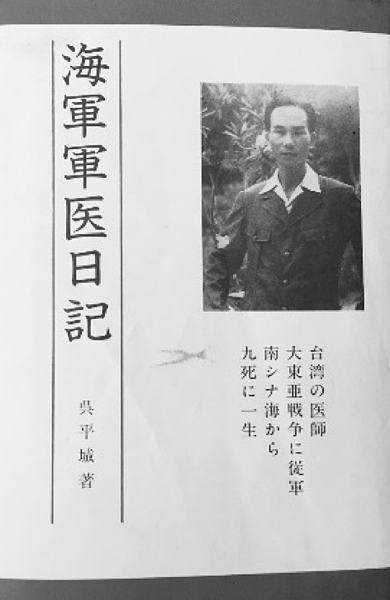 台湾の医師
大東亜戦争に従軍
南シナ海から
九死に一生
海軍軍医日記
呉平城著